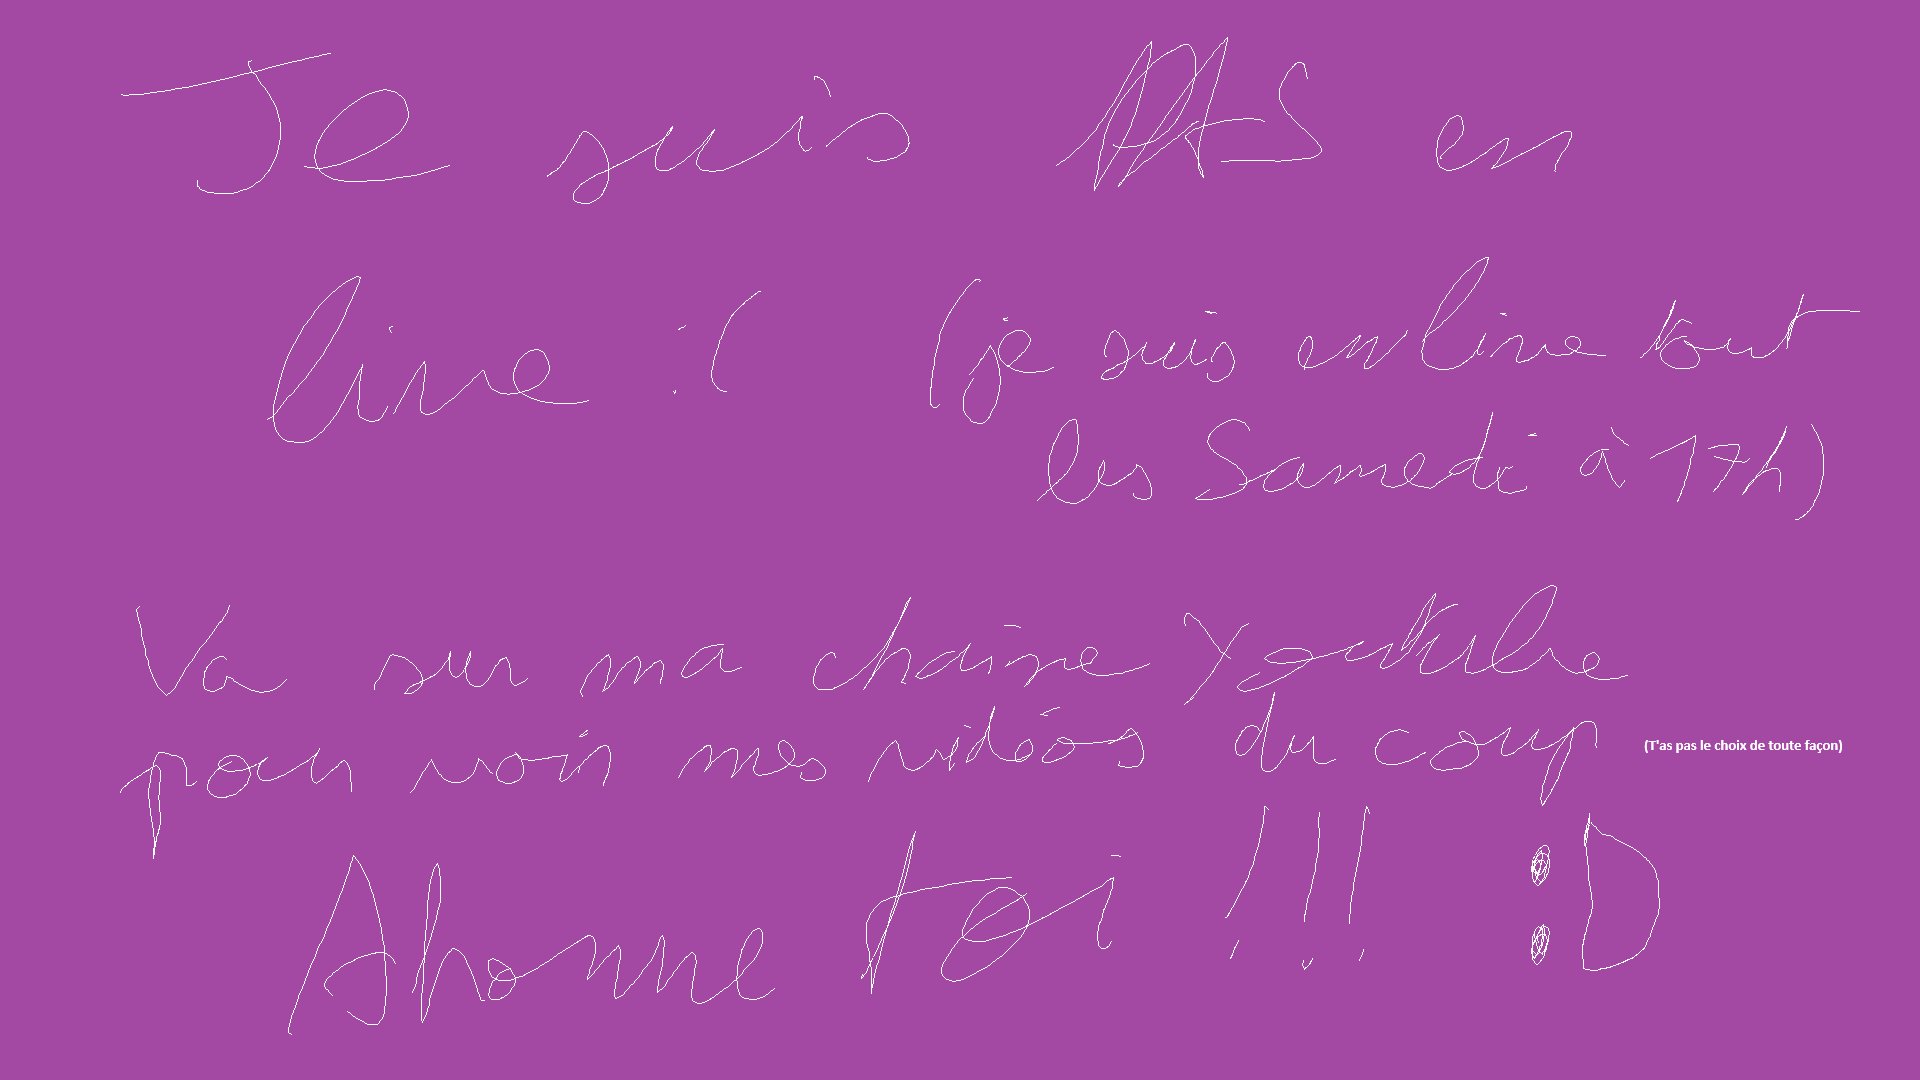 Je suis PAS en
live :( (je suis en live tout
les Samedi à 17h)
Va sur ma chaine Youtube
pour voir mes vidéos du coup (T'as pas le choix de toute façon)
Abonne toi !!! :D